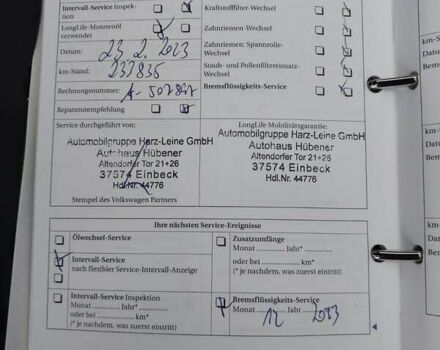 Intervall-Service Inspek-
tion
LongLife-Motorenöl
verwendet
Datum: 23. 2. 2023
km-Stand: 233835
Rechnungsnummer:
Reparaturempfehlung
Kraftstofffilter-Wechsel
Zahnriemen-Wechsel
Zahnriemen: Spannrolle-
Wechsel
Staub- und Pollenfiltereinsatz-
Wechsel
Bremsflüssigkeits-Service
Service durchgeführt von:
Automobilgruppe Harz-Leine GmbH
Autohaus Hübener
Altendorfer Tor 21+26
37574 Einbeck
Hdl.Nr. 44776
Stempel des Volkswagen Partners
LongLife Mobilitätsgarantie:
Automobilgruppe Harz-Leine GmbH
Autohaus Hübener
Altendorfer Tor 21+26
37574 Einbeck
Hdl.Nr. 44776
Ihre nächsten Service-Ereignisse
Ölwechsel-Service
Intervall-Service
nach flexibler Service-Intervall-Anzeige
Intervall-Service Inspektion
Monat ........ Jahr* ........
oder bei ........ km*
(* je nachdem, was zuerst eintritt)
Zusatzumfänge
Monat ........ Jahr* ........
oder bei ........ km*
(* je nachdem, was zuerst eintritt)
Bremsflüssigkeits-Service
Monat 12 Jahr
km-S
Datu
Bem
km-S
Datu
Bem
km-S
Datu
Bem